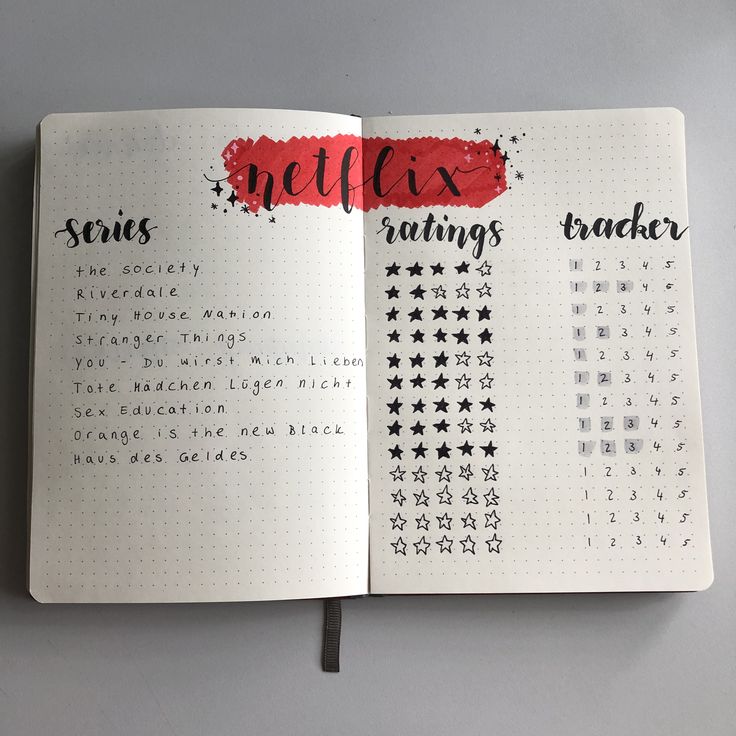 netflix
series
the society
Riverdale
Tiny House Nation
Stranger Things
You - Du wirst mich Lieben
Tote Mädchen Lügen nicht
Sex Education
Orange is the new Black
Haus des Geldes
ratings tracker
1 2 3 4 5
1 2 3 4 5
1 2 3 4 5
1 2 3 4 5
1 2 3 4 5
1 2 3 4 5
1 2 3 4 5
1 2 3 4 5
1 2 3 4 5
1 2 3 4 5
1 2 3 4 5
1 2 3 4 5
1 2 3 4 5